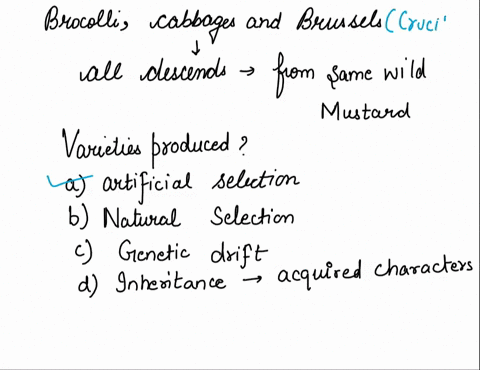 Brocolli, cabbages and Brussels (Cruci'
all descends → from same wild
Mustard
Varieties produced ?
a) artificial selection
b) Natural Selection
c) Genetic drift
d) Inheritance → acquired characters